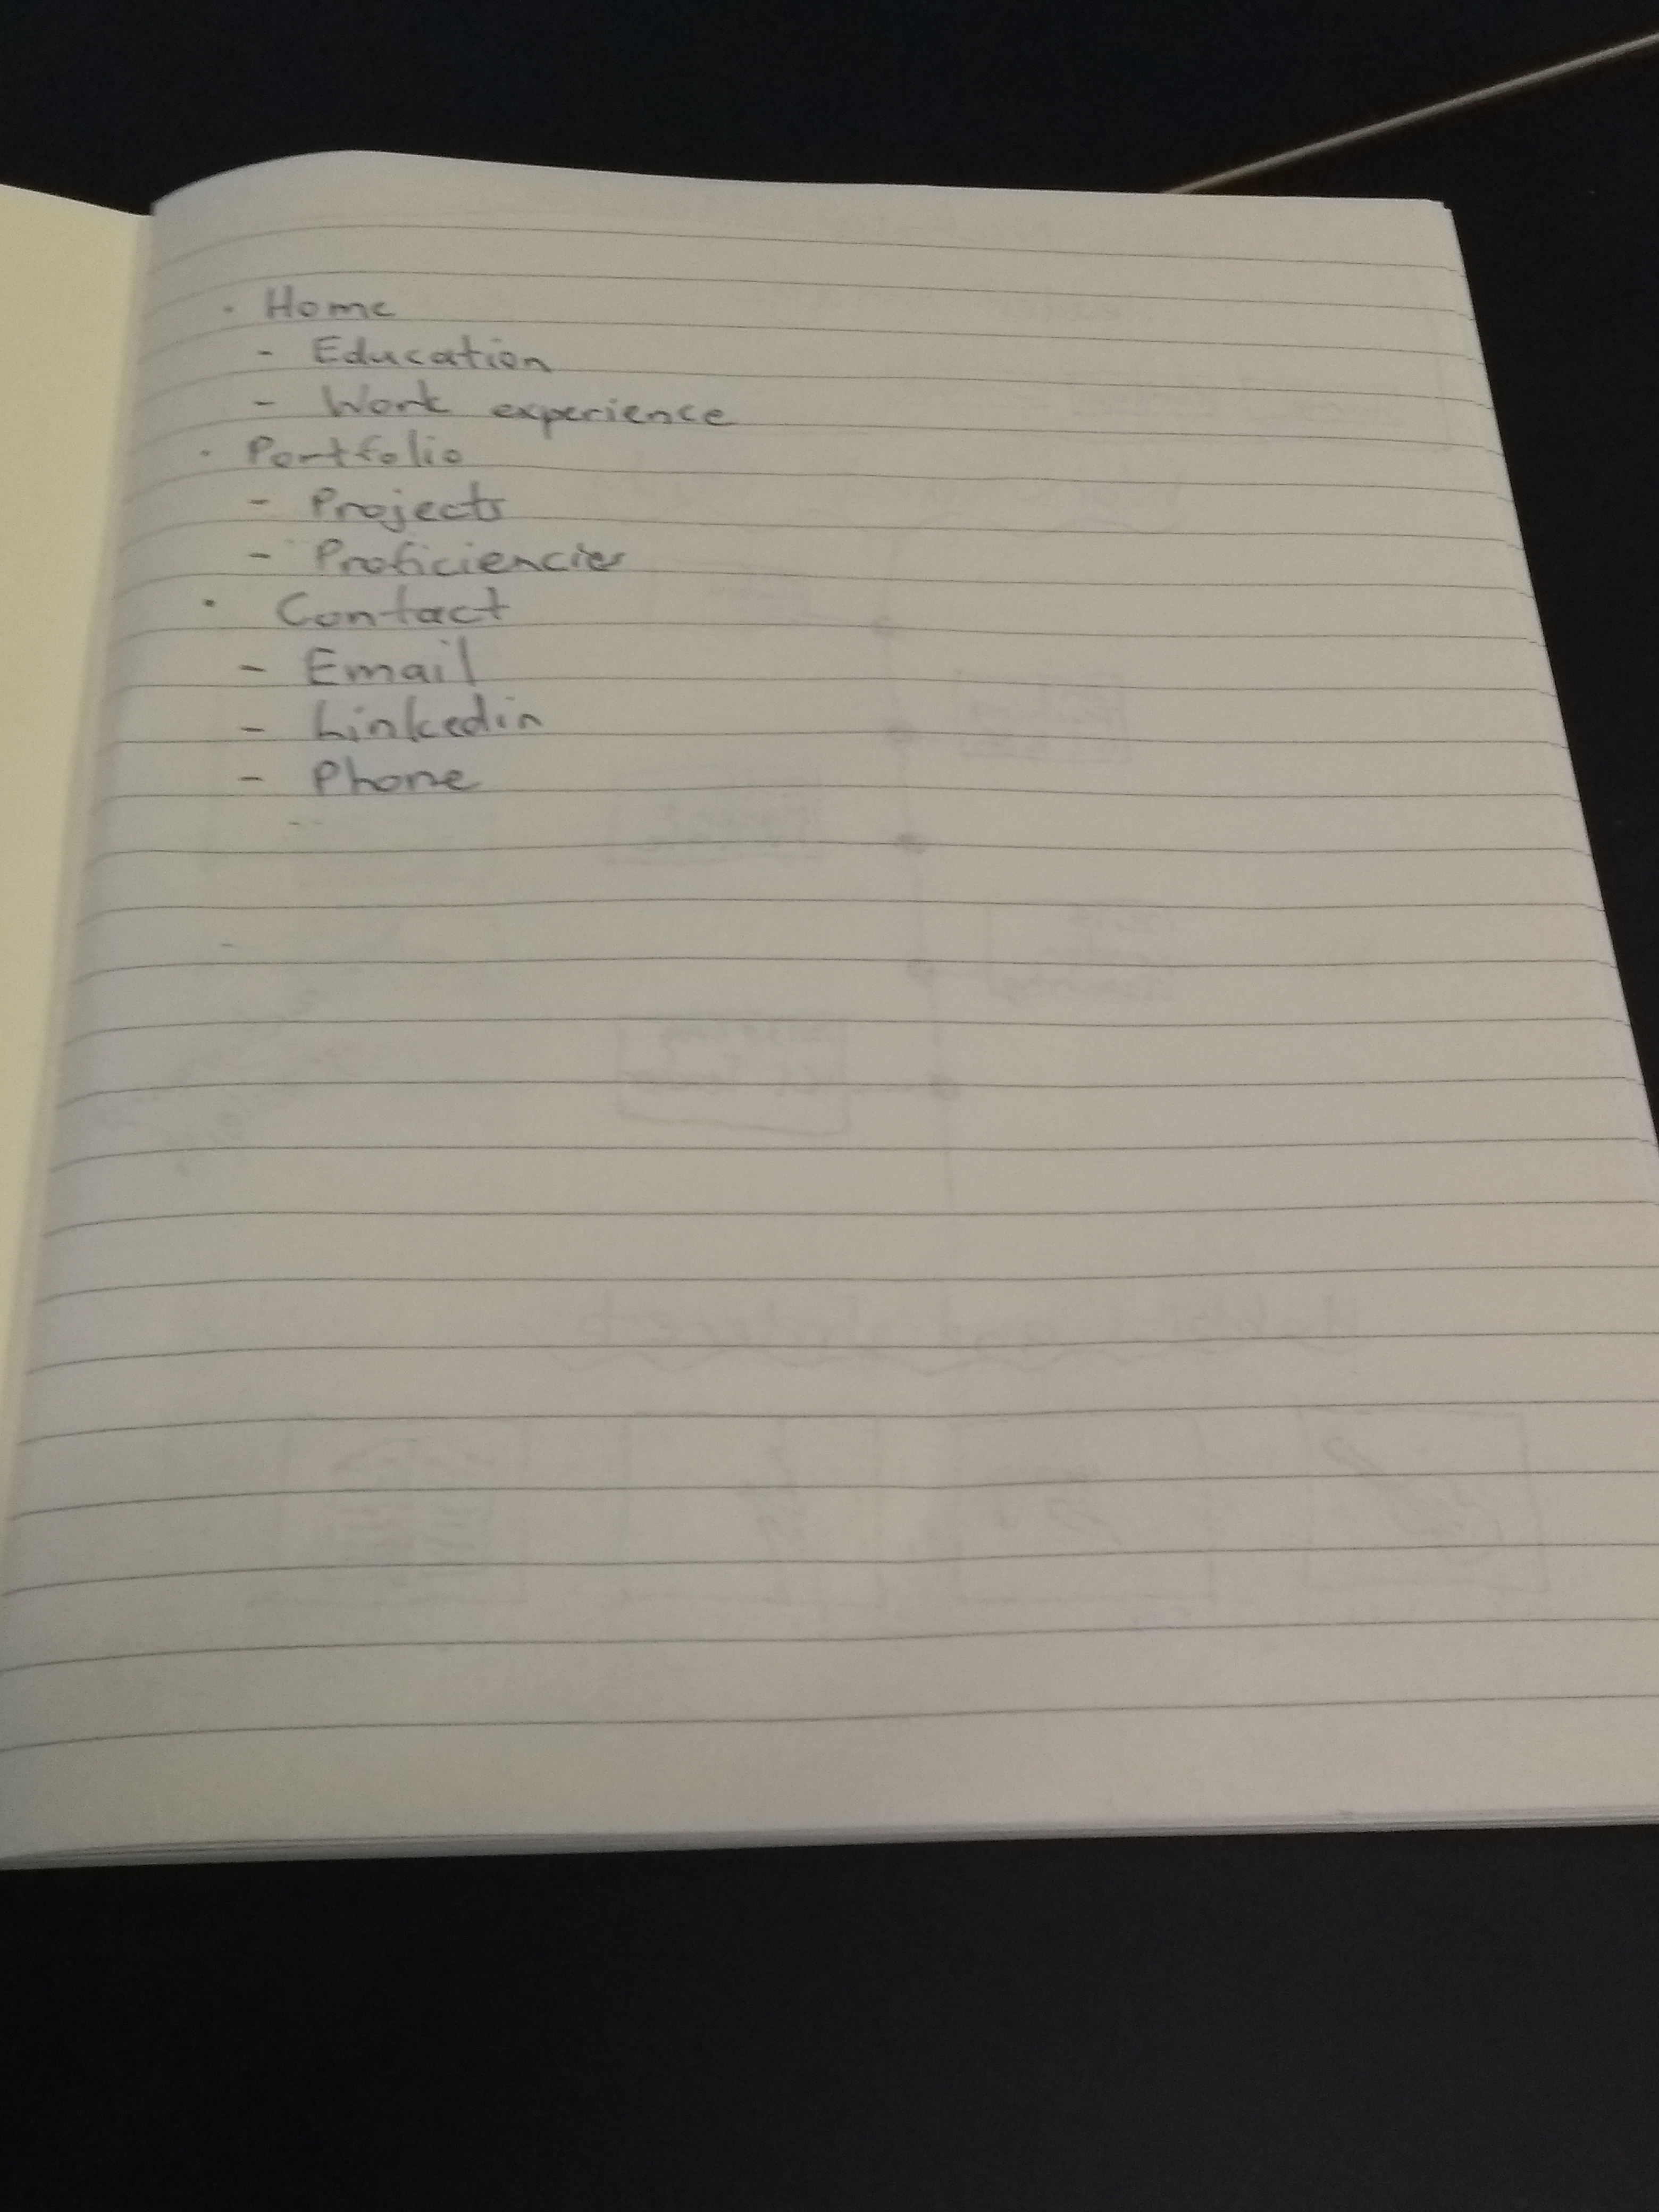 · Home
- Education
- Work experience
· Portfolio
- Projects
- Proficiencies
· Contact
- Email
- Linkedin
- Phone